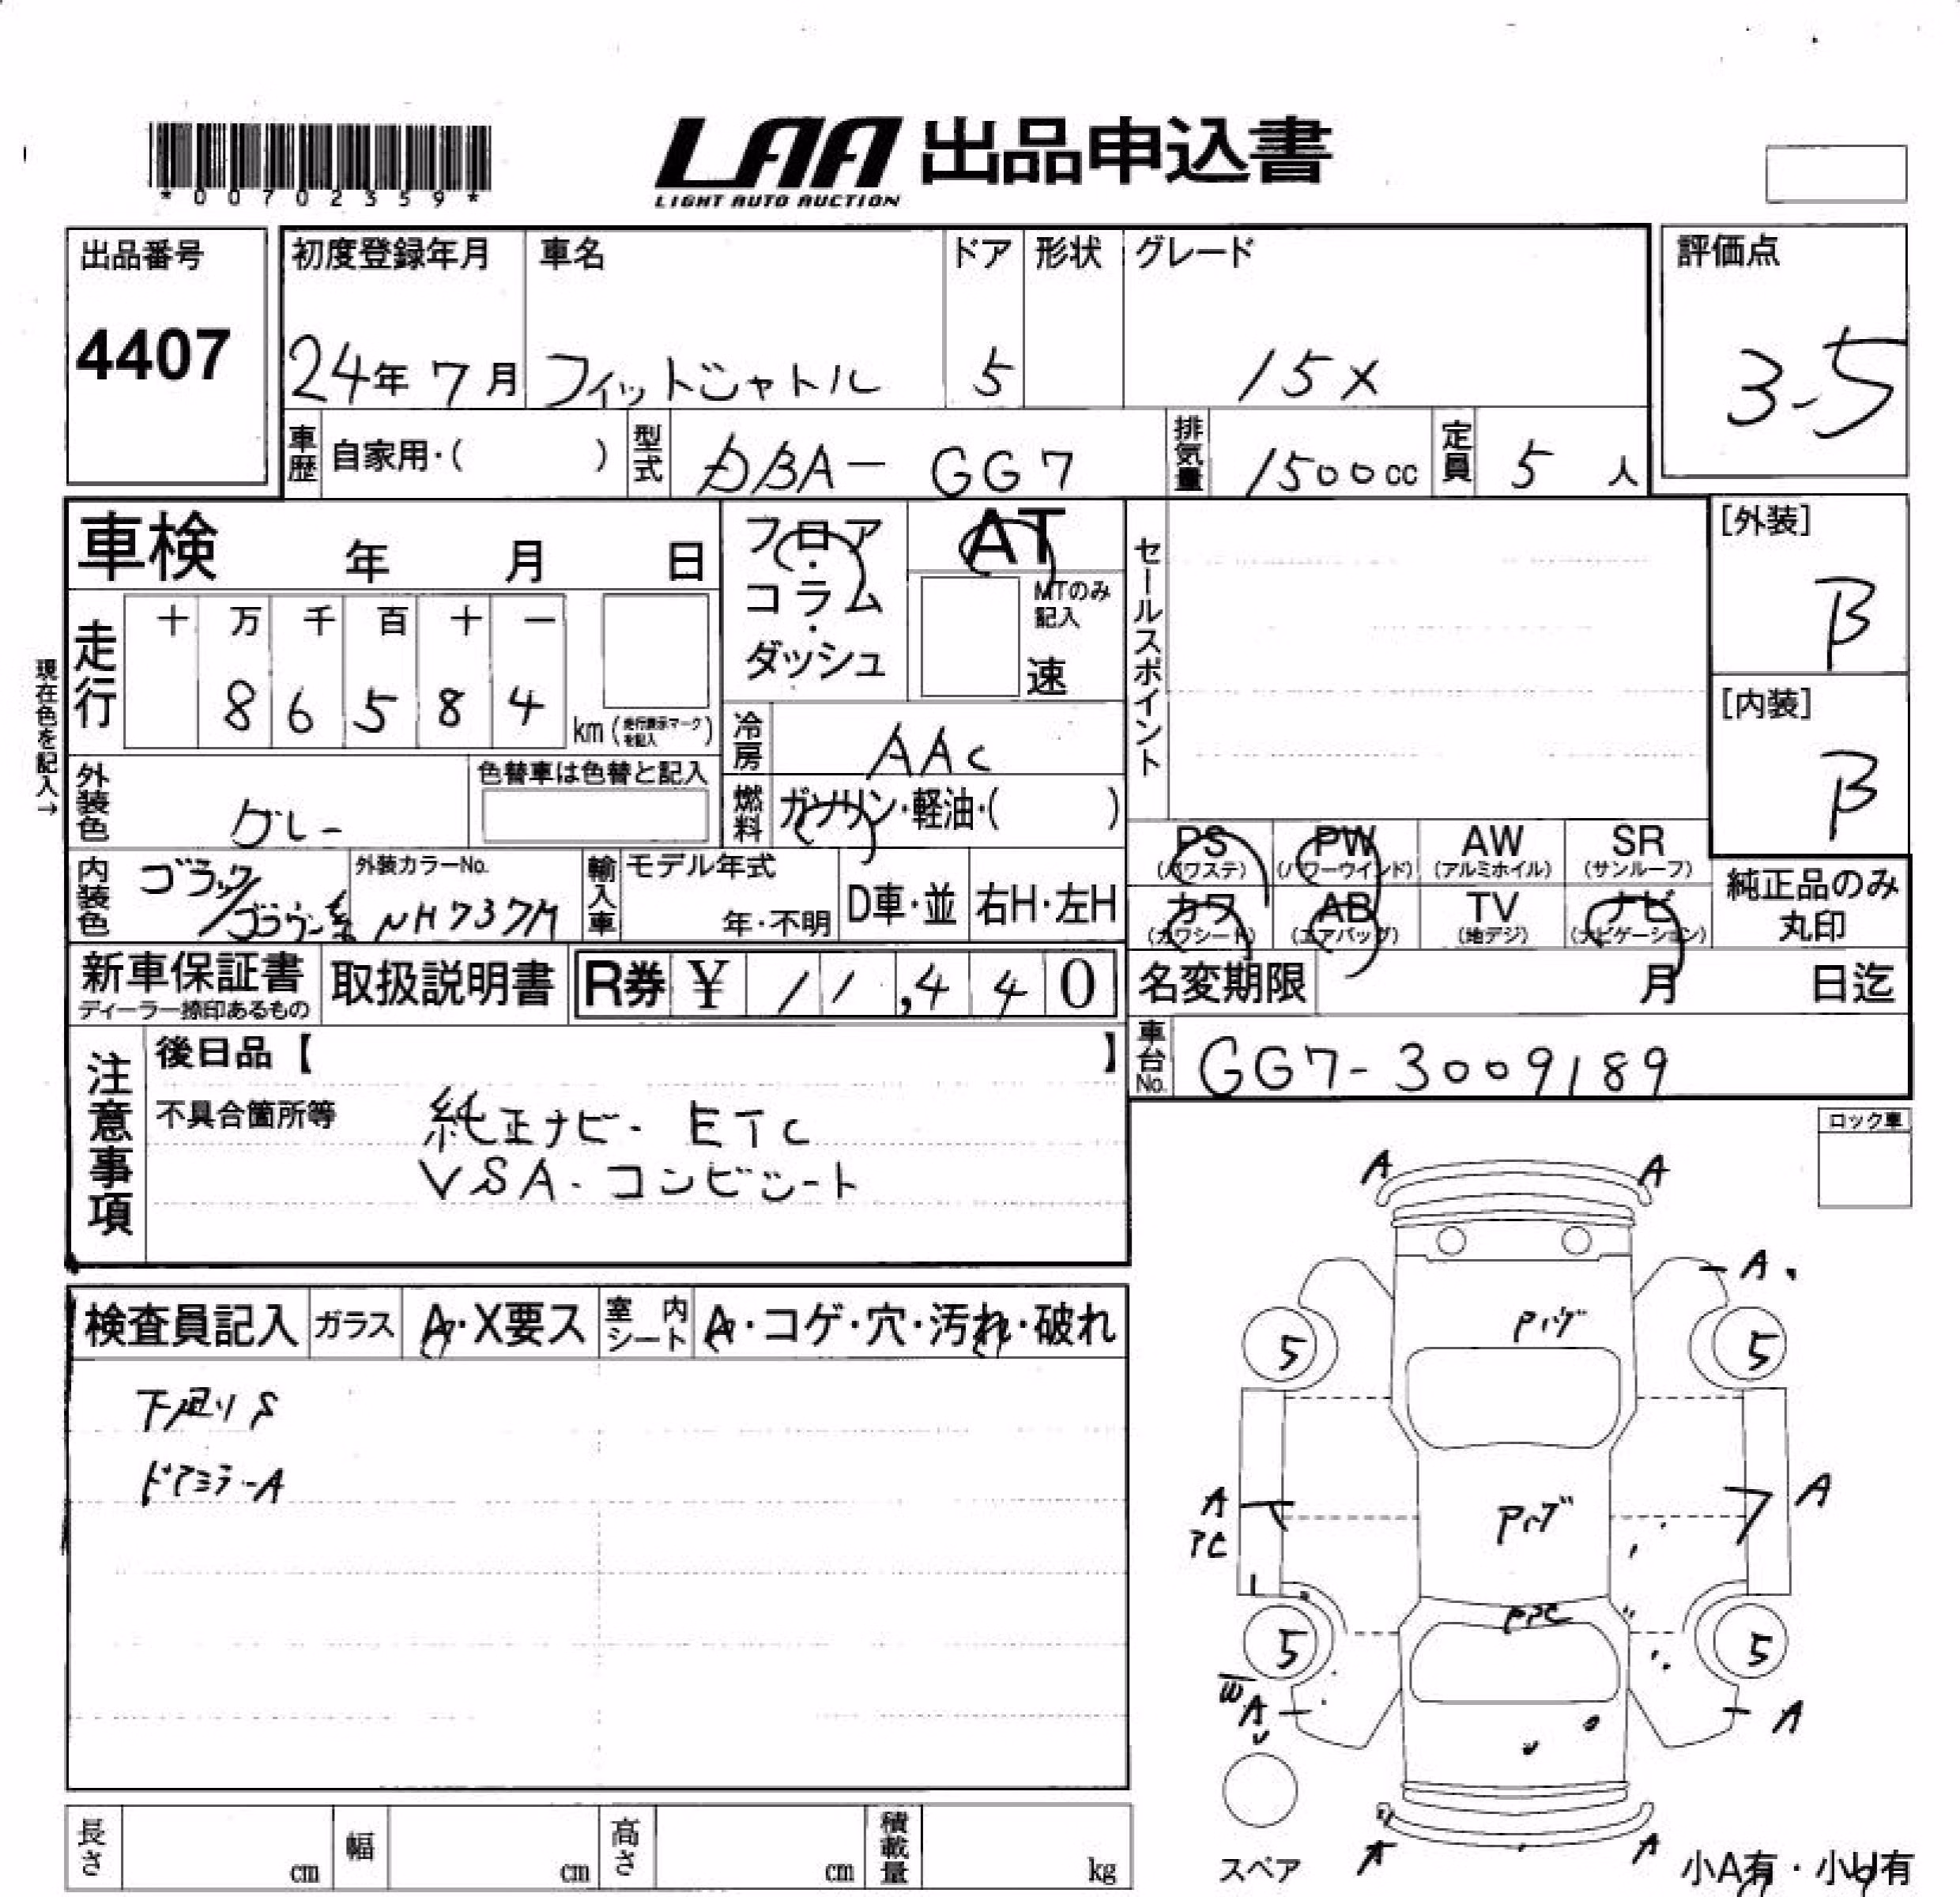 *00702359*
LAA 出品申込書
LIGHT AUTO AUCTION
出品番号
4407
初度登録年月
24年 7月
車名
フィットシャトル
ドア
5
形状
グレード
15X
評価点
3.5
車歴
自家用・( )
型式
DBA- GG7
排気量
1500cc
定員
5 人
車検 年 月 日
フロア・コラム・ダッシュ
AT
MTのみ記入
速
セールスポイント
[外装]
B
[内装]
B
現在色を記入→
走行
十 万 千 百 十 一
8 6 5 8 4
km (走行表示マークを記入)
冷房
AAC
燃料
ガソリン・軽油・( )
外装色
グレー
色替車は色替と記入
内装色
外装カラーNo.
NH737M
輸入車
モデル年式
年・不明
D車・並
右H・左H
PS (パワステ)
PW (パワーウインド)
AW (アルミホイル)
SR (サンルーフ)
カワ (カワシート)
AB (エアバッグ)
TV (地デジ)
ナビ (ナビゲーション)
純正品のみ丸印
新車保証書
ディーラー捺印あるもの
取扱説明書
R券 ¥ 11,440
名変期限 月 日迄
車台No.
GG7-3009189
注意事項
後日品【 】
不具合箇所等
純正ナビ・ETC
VSA・コンビシート
ロック車
検査員記入
ガラス
A・X要ス
室内シート
A・コゲ・穴・汚れ・破れ
下廻りS
ドアミラーA
A A
A
5 5
A
A
5 5
W
A A
A A
スペア
小A有・小U有
長さ cm
幅 cm
高さ cm
積載量 kg